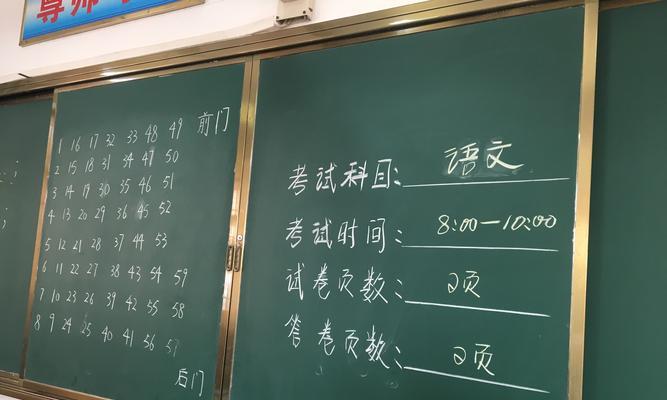 尊师
1 16 17 32 33 48 49 前门
2 15 18 31 34 47 50
3 14 19 30 35 46 51
4 13 20 29 36 45 52
5 12 21 28 37 44 53
6 11 22 27 38 43 54 59
7 10 23 26 39 42 55 58
8 9 24 25 40 41 56 57
后门
考试科目: 语文
考试时间: 8:00—10:00
试卷页数: 2页
答卷页数: 2页